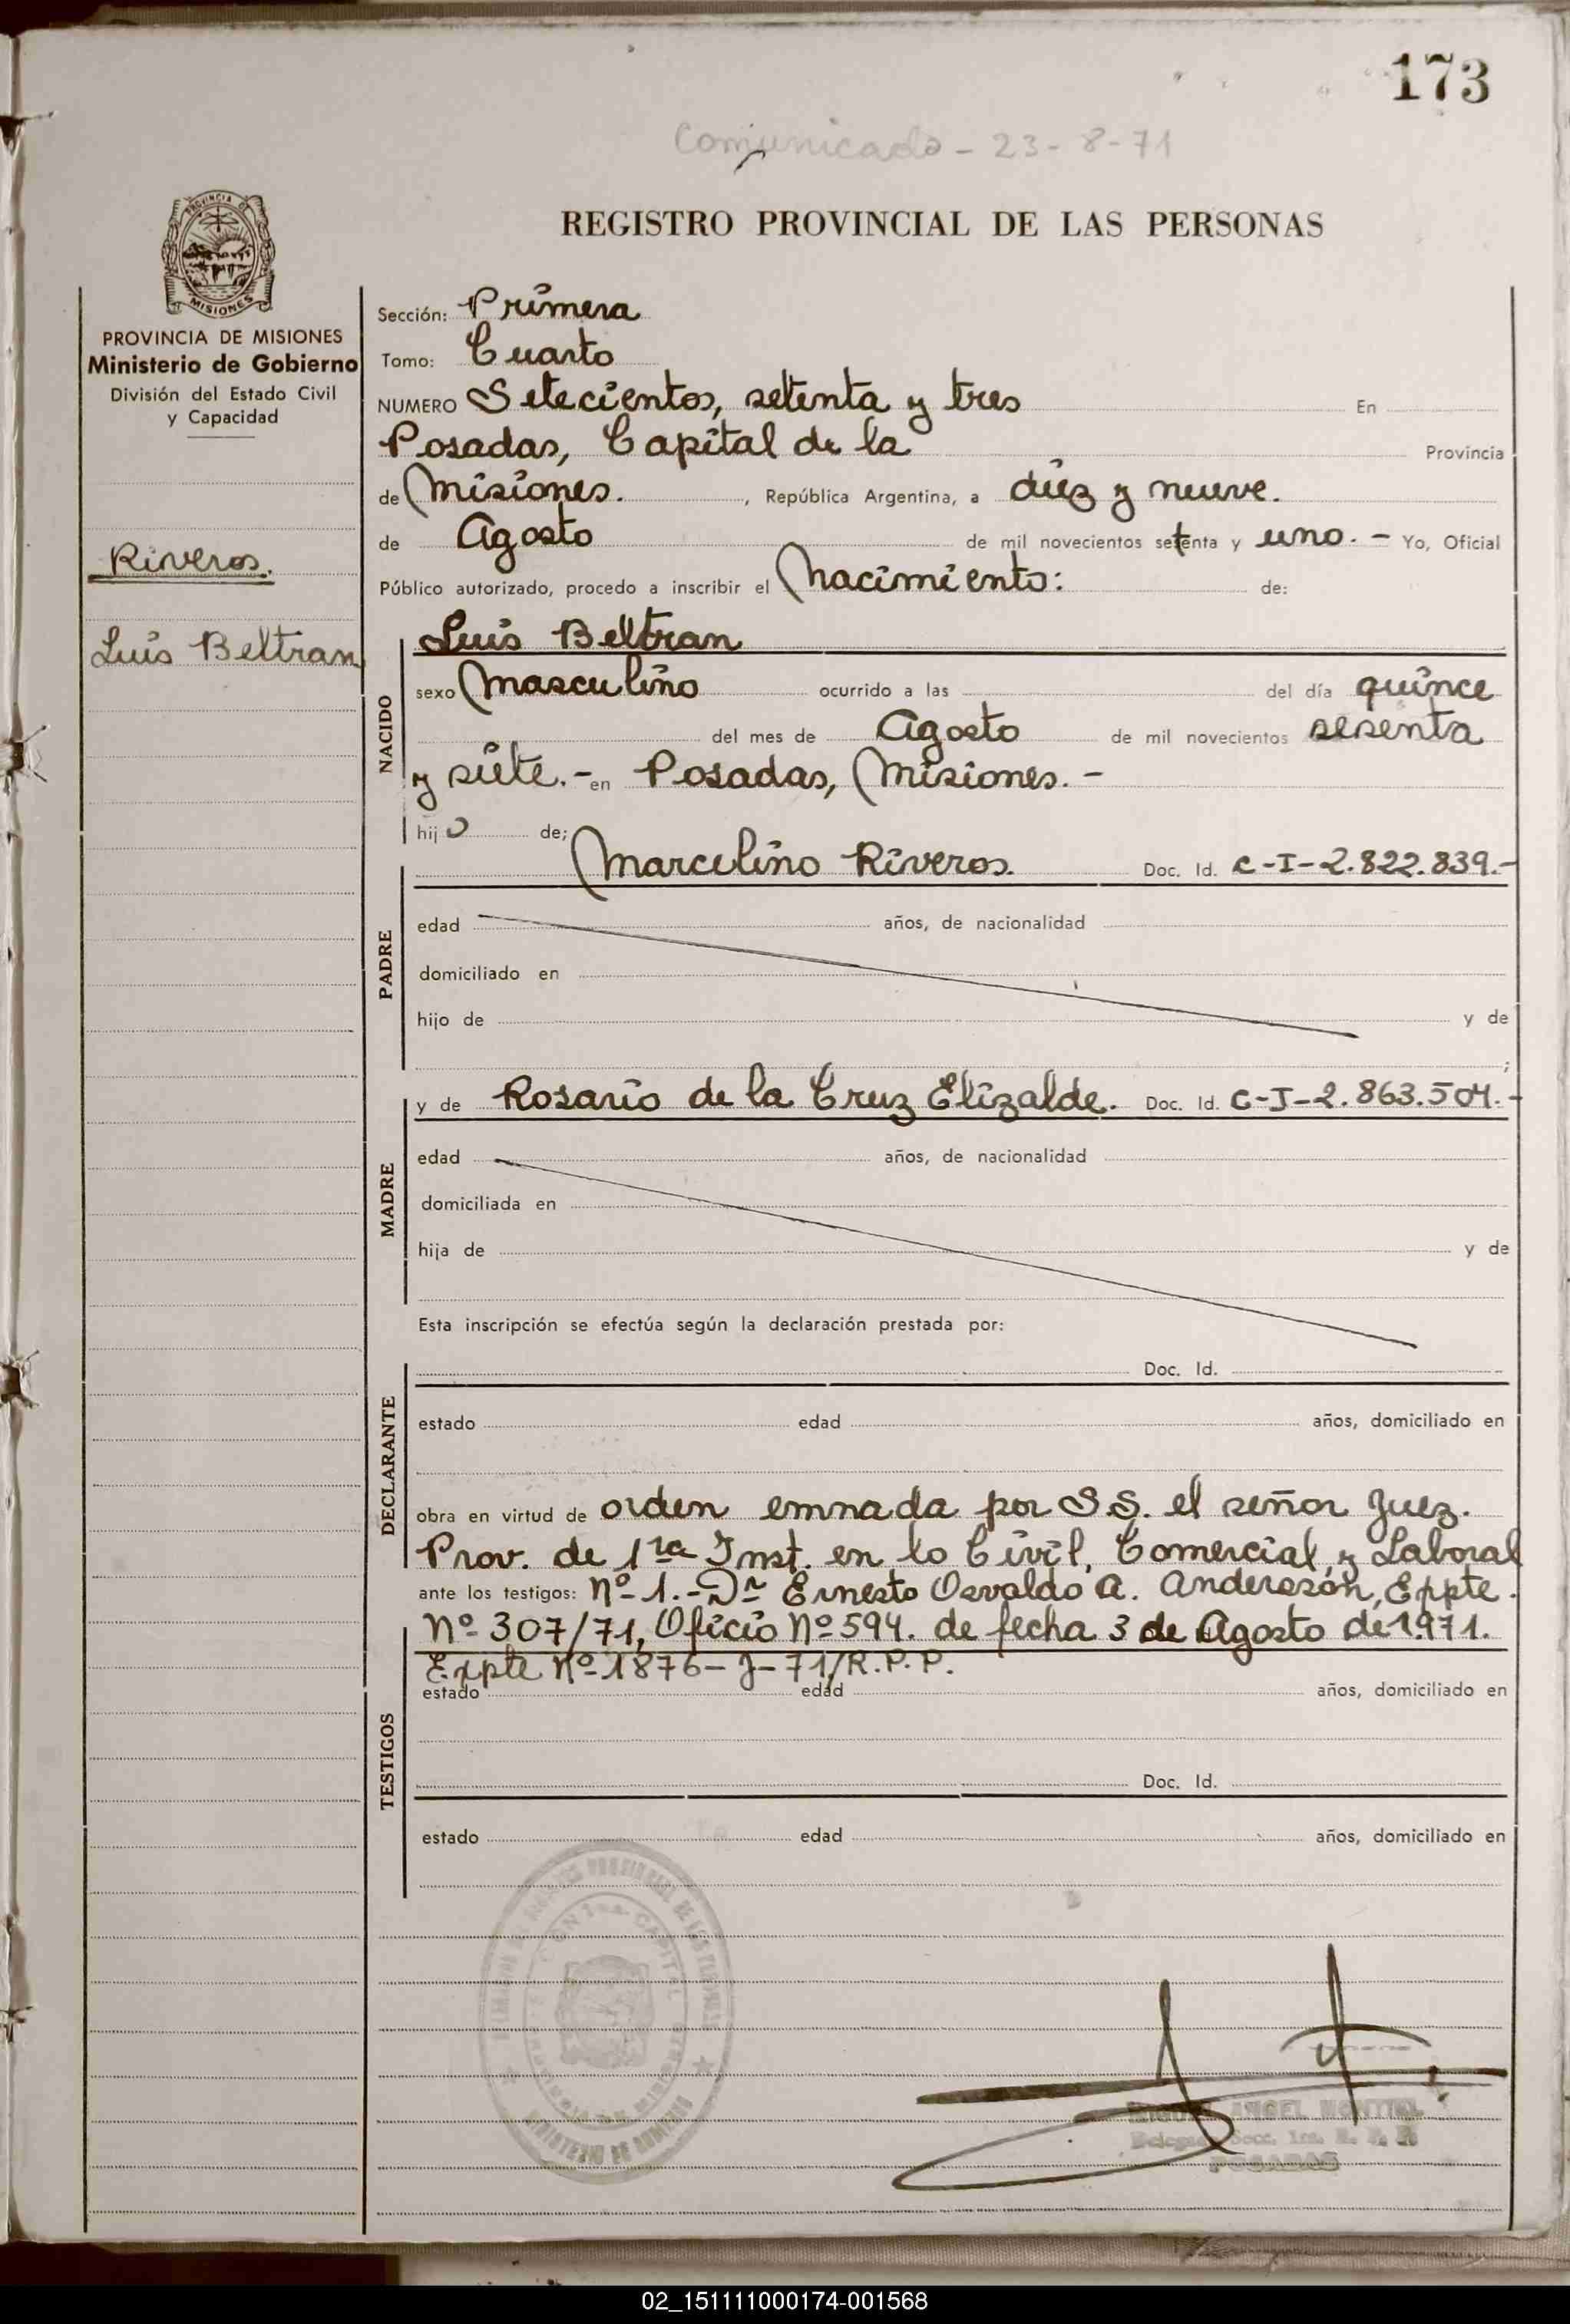 173
Comunicado - 23-8-71
PROVINCIA DE
MISIONES
PROVINCIA DE MISIONES
Ministerio de Gobierno
División del Estado Civil
y Capacidad
Riveros.
Luis Beltran
REGISTRO PROVINCIAL DE LAS PERSONAS
Sección: Primera
Tomo: Cuarto
NUMERO Setecientos, setenta y tres En
Posadas, Capital de la Provincia
de Misiones. , República Argentina, a diez y nueve.
de Agosto de mil novecientos setenta y uno. - Yo, Oficial
Público autorizado, procedo a inscribir el Nacimiento: de:
NACIDO
Luis Beltran
sexo Masculino ocurrido a las del día quince
del mes de Agosto de mil novecientos sesenta
y siete. - en Posadas, Misiones. -
hijo de;
PADRE
Marcelino Riveros. Doc. Id. C-I-2.822.839.-
edad años, de nacionalidad
domiciliado en
hijo de y de
;
MADRE
y de Rosario de la Cruz Elizalde. Doc. Id. C-I-2.863.504.-
edad años, de nacionalidad
domiciliada en
hija de y de
Esta inscripción se efectúa según la declaración prestada por:
DECLARANTE
Doc. Id.
estado edad años, domiciliado en
obra en virtud de orden emnada por S.S. el señor Juez.
Prov. de 1ra Inst. en lo Civil, Comercial y Laboral
ante los testigos: Nº 1.- Dr Ernesto Osvaldo A. Anderssón, Expte.
Nº 307/71, Oficio Nº 594. de fecha 3 de Agosto de 1.971.
Expte Nº 1876-J-71/R.P.P.
TESTIGOS
estado edad años, domiciliado en
Doc. Id.
estado edad años, domiciliado en
MINISTERIO DE GOBIERNO
MIGUEL ANGEL MONTIEL
Delegado Secc. 1ra. R. P. P.
POSADAS
02_151111000174-001568